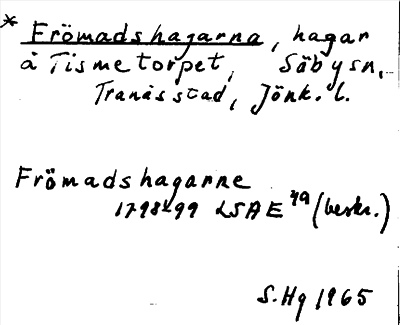 * Frömadshagarna, hagar
å Tismetorpet, Säby sn,
Tranås stad, Jönk. l.
Frömadshagarne
1798-99 LSA E 49 (beskr.)
S. Hg 1965